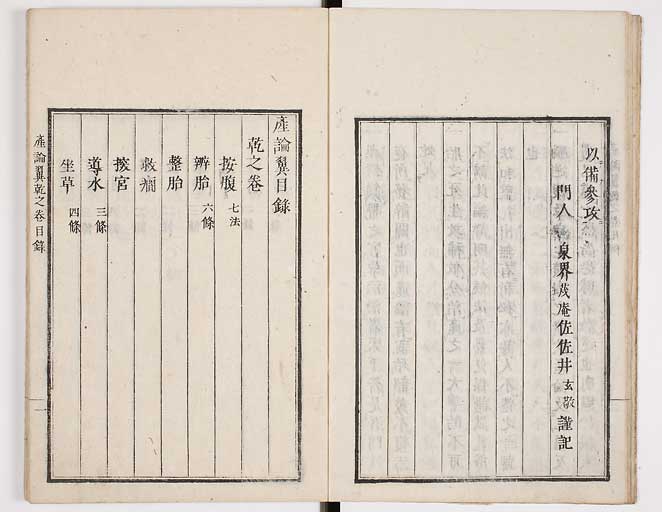 以備參攷
門人 泉界茂庵佐佐井玄敬謹記
產論翼目錄
乾之卷
按腹 七法
辨胎 六條
整胎
救癇
探宮
導水 三條
坐草 四條
產論翼乾之卷目錄
一